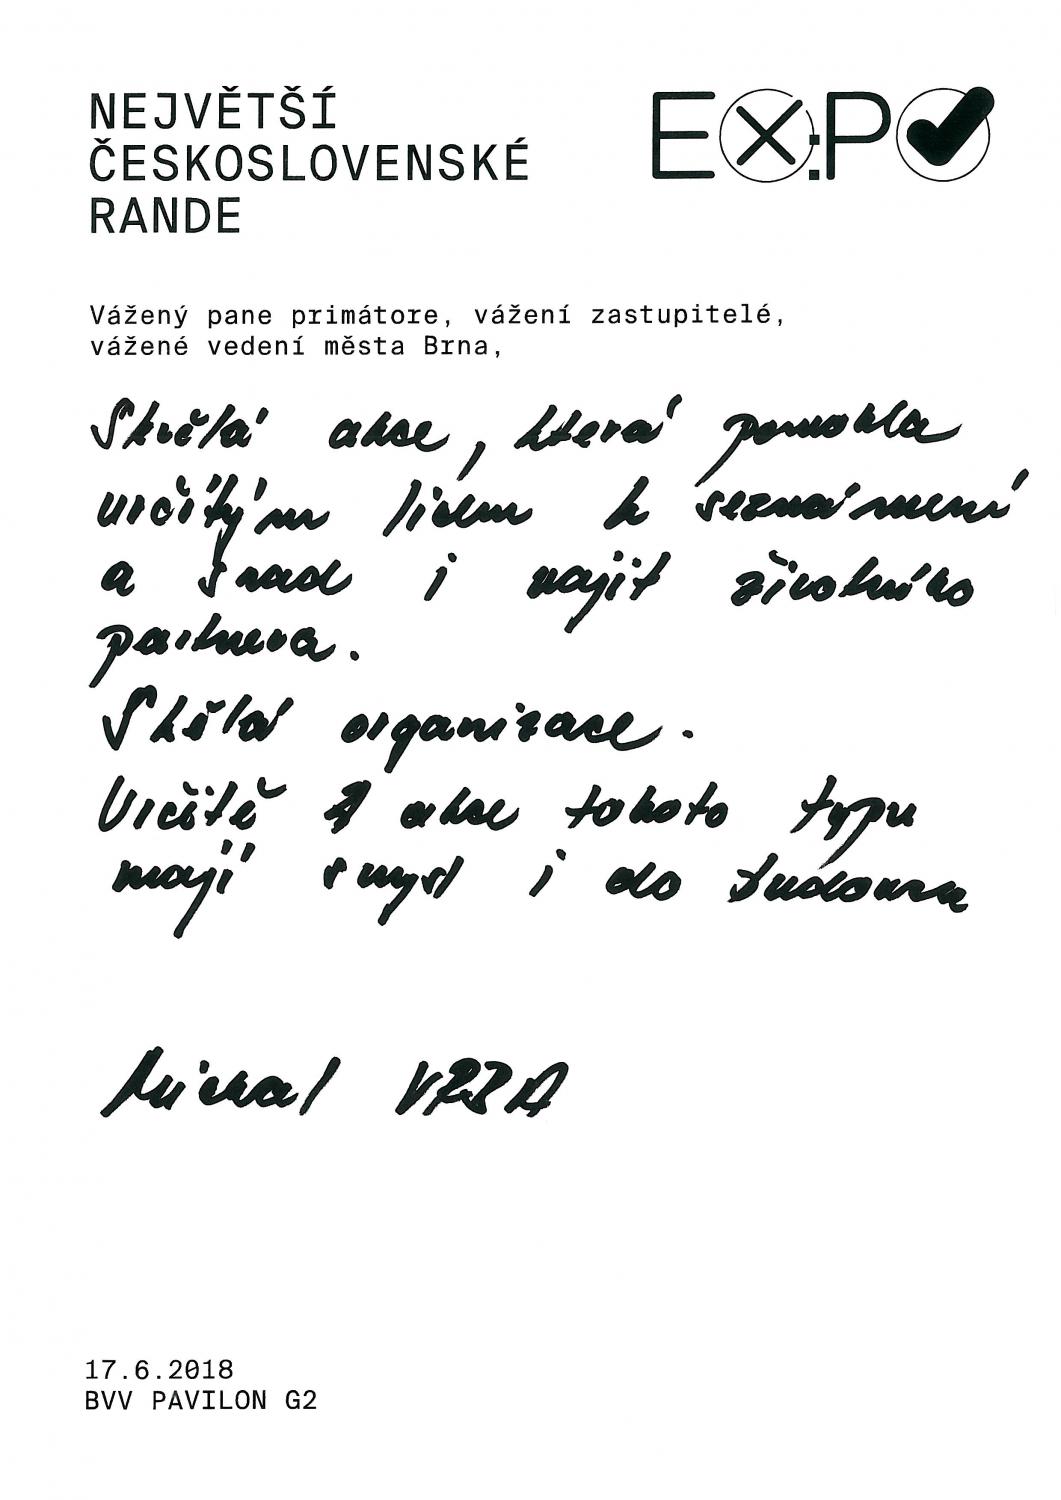 NEJVĚTŠÍ
ČESKOSLOVENSKÉ
RANDE
EX:PO
Vážený pane primátore, vážení zastupitelé,
vážené vedení města Brna,
Skvělá akce, která pomohla
určitým lidem k seznámení
a snad i najít životního
partnera.
Skělá organizace.
Určitě akce tohoto typu
mají smysl i do budoucna
Michal VRBA
17.6.2018
BVV PAVILON G2